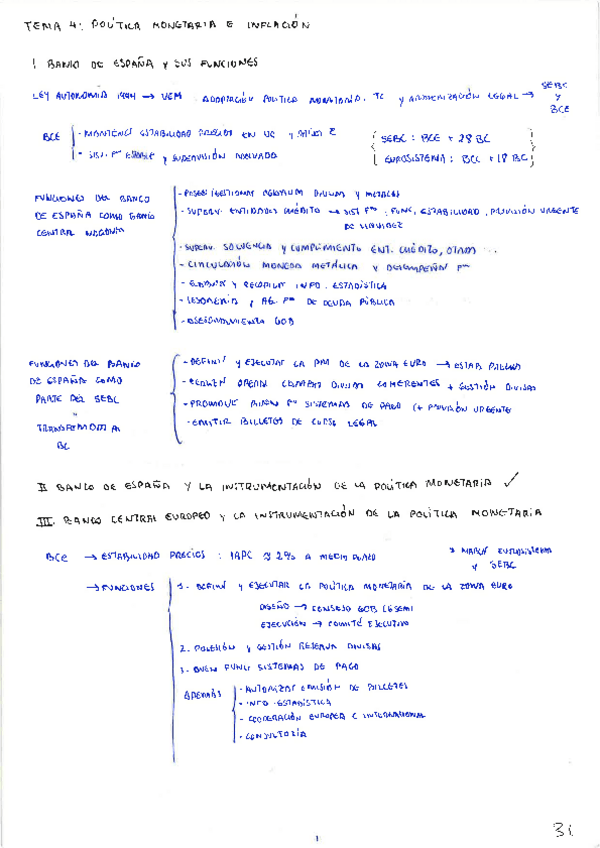 TEMA 4: POLÍTICA MONETARIA E INFLACIÓN
I BANCO DE ESPAÑA Y SUS FUNCIONES
LEY AUTONOMÍA 1994 → UEM ADOPCIÓN POLÍTICA MONETARIA, TC Y ARMONIZACIÓN LEGAL → SEBC Y BCE
BCE - MANTENER ESTABILIDAD PRECIOS EN UE Y
- SIST. Fº ESTABLE Y SUPERVISIÓN ADECUADA
SEBC: BCE + 28 BC
EUROSISTEMA: BCE + 18 BC
FUNCIONES DEL BANCO DE ESPAÑA COMO BANCO CENTRAL NACIONAL
- POSEER/GESTIONAR DIVISAS Y METALES
- SUPERV. ENTIDADES CRÉDITO → SIST Fº: FUNC, ESTABILIDAD, PROVISIÓN URGENTE DE LIQUIDEZ
- SUPERV. SOLVENCIA Y CUMPLIMIENTO ENT. CRÉDITO, OTROS ...
- CIRCULACIÓN MONEDA METÁLICA Y DESEMPEÑAR Fº
- ELABORAR Y RECOPILAR INFO. ESTADÍSTICA
- TESORERÍA Y AG. Fº DE DEUDA PÚBLICA
- ASESORAMIENTO GOB
FUNCIONES DEL BANCO DE ESPAÑA COMO PARTE DEL SEBC
"
BC
- DEFINIR Y EJECUTAR LA PM DE LA ZONA EURO → ESTAB. PRECIOS
- REALIZAR OPERAC CAMBIO DIVISAS COHERENTES + GESTIÓN DIVISAS
- PROMOVER BUEN Fº SISTEMAS DE PAGO (+ PROVISIÓN URGENTE
- EMITIR BILLETES DE CURSO LEGAL
II BANCO DE ESPAÑA Y LA INSTRUMENTACIÓN DE LA POLÍTICA MONETARIA ✓
III. BANCO CENTRAL EUROPEO Y LA INSTRUMENTACIÓN DE LA POLÍTICA MONETARIA
BCE → ESTABILIDAD PRECIOS: IAPC ≈ 2% A MEDIO PLAZO
* MARCA EUROSISTEMA Y SEBC
→ FUNCIONES
1. DEFINIR Y EJECUTAR LA POLÍTICA MONETARIA DE LA ZONA EURO
DISEÑO → CONSEJO GOB
EJECUCIÓN → COMITÉ EJECUTIVO
2. POSESIÓN Y GESTIÓN RESERVA DIVISAS
3. BUEN FUNC SISTEMAS DE PAGO
ADEMÁS - AUTORIZAR EMISIÓN DE BILLETES
- INFO. ESTADÍSTICA
- COOPERACIÓN EUROPEA E INTERNACIONAL
- CONSULTORÍA
1
31